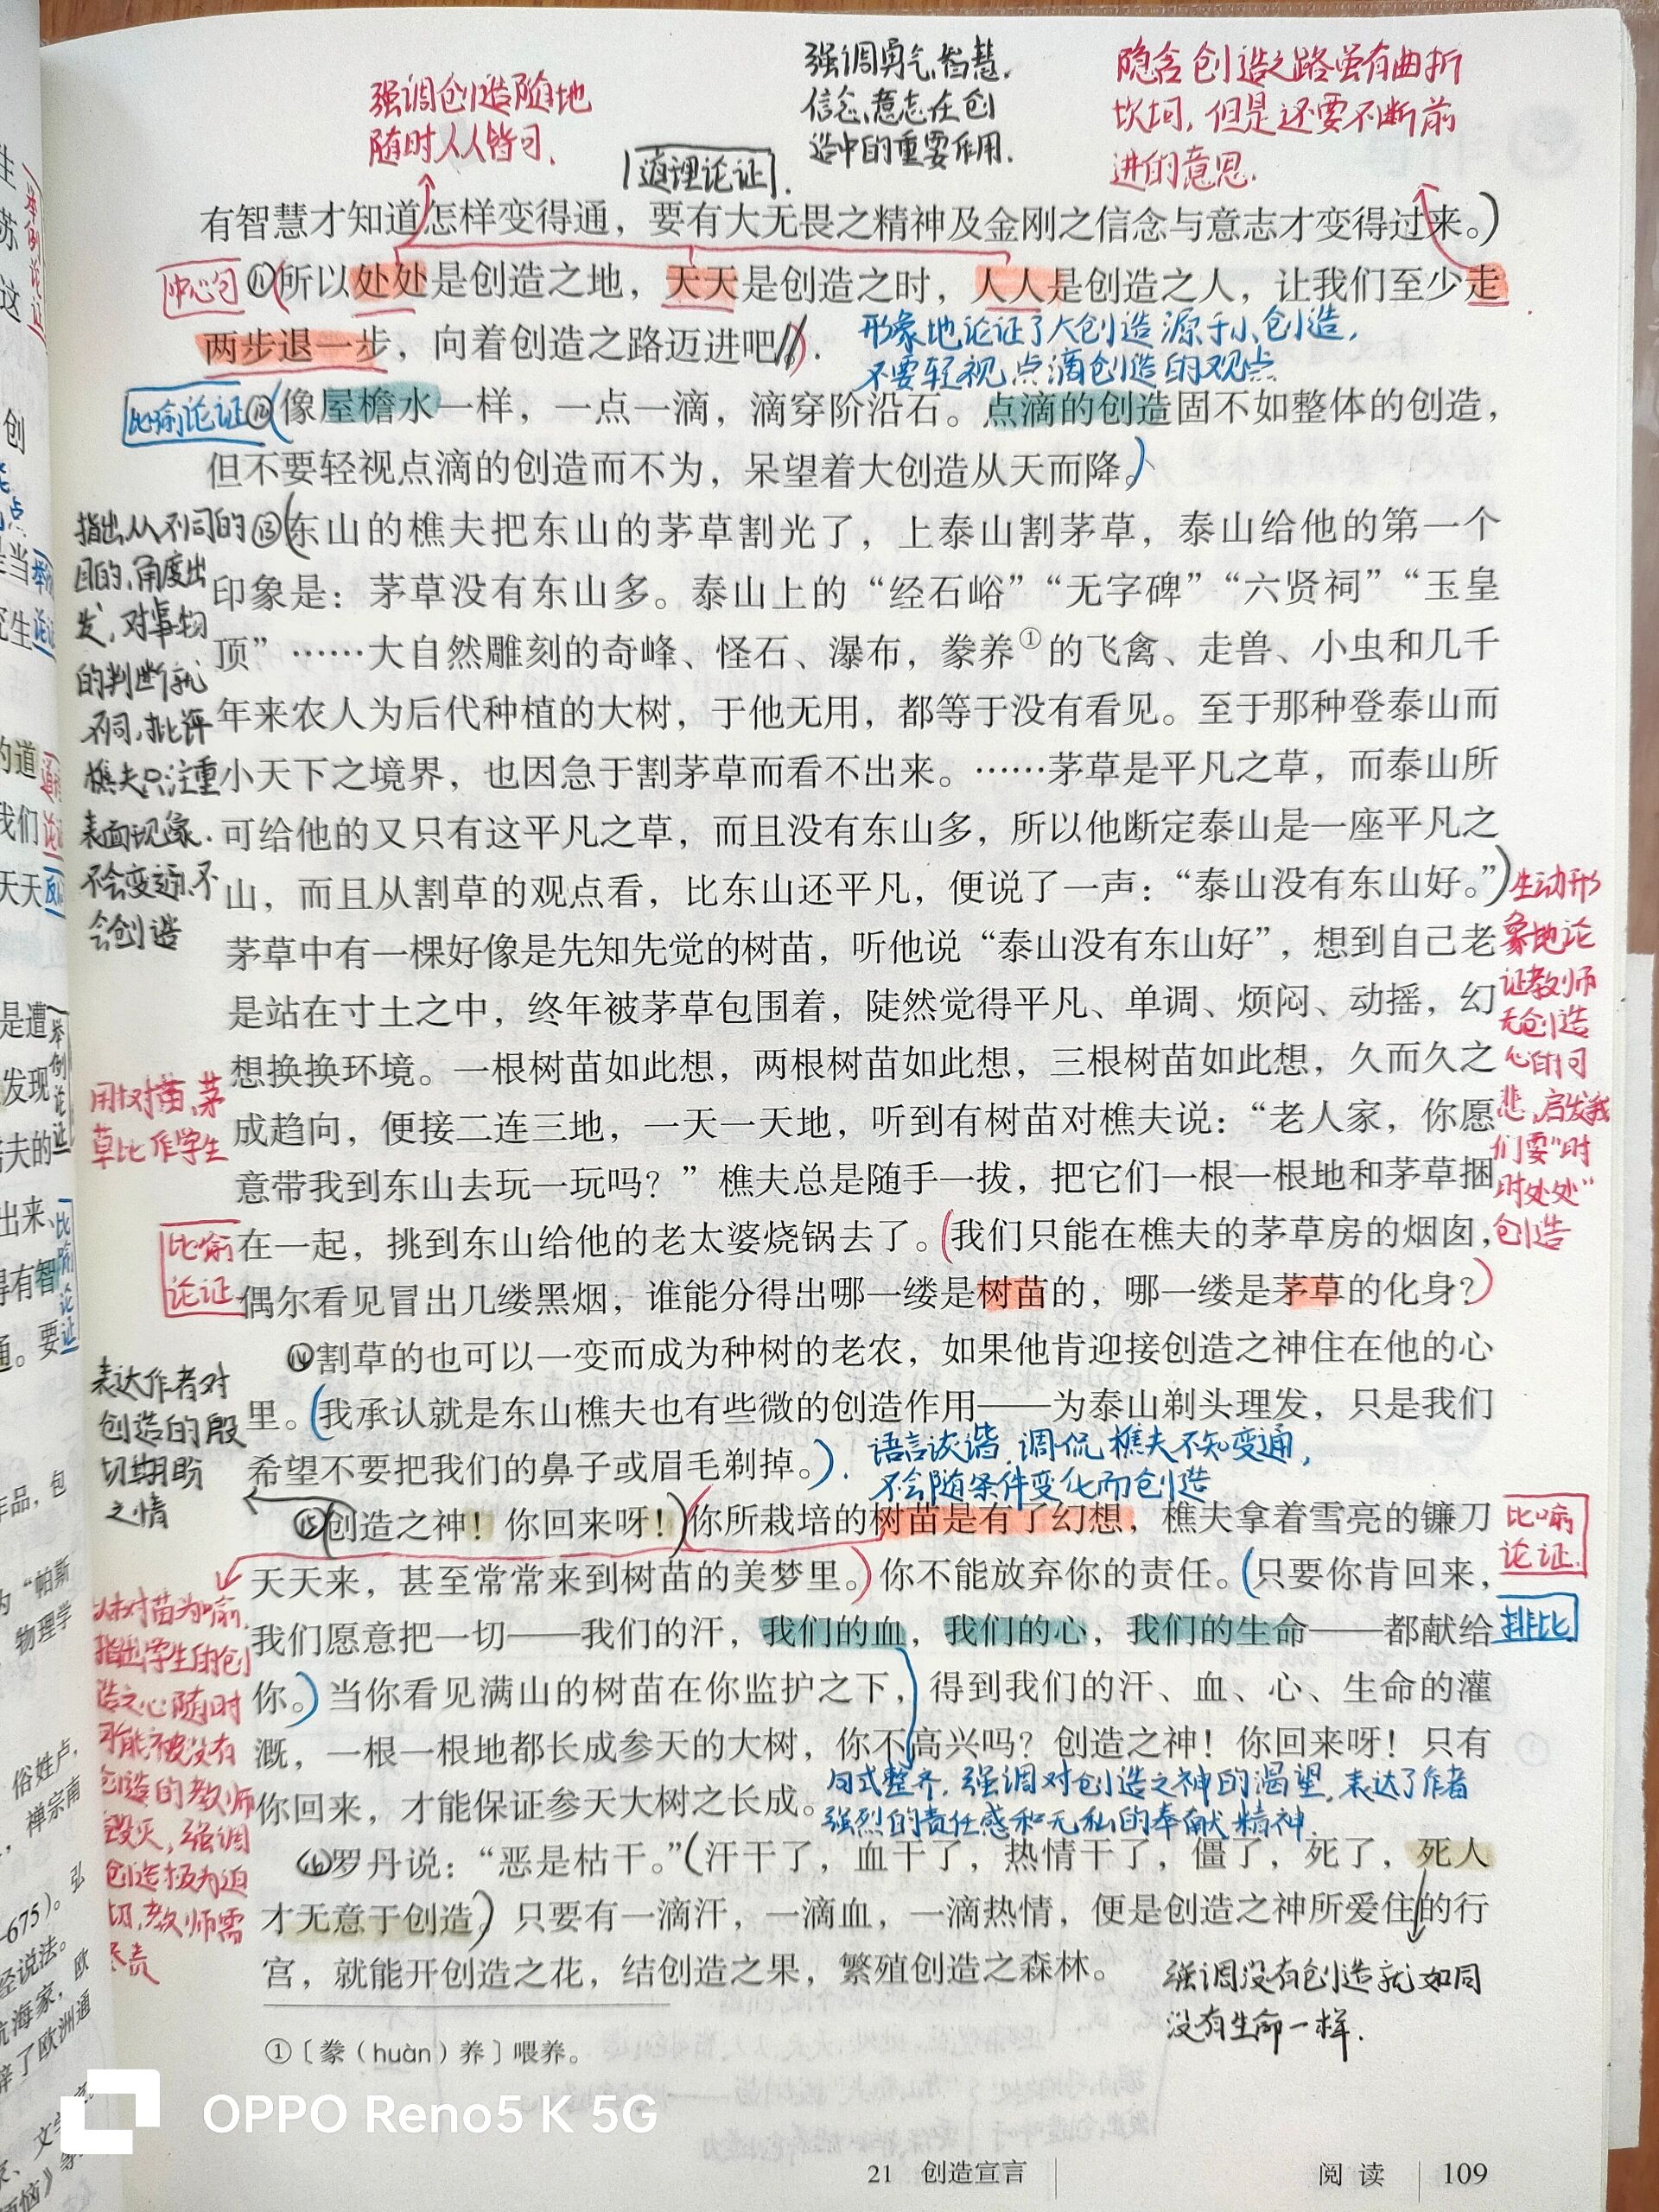 强调创造随地
随时人人皆可.
道理论证.
强调勇气、智慧.
信念、意志在创
造中的重要作用.
隐含创造之路虽有曲折
坎坷,但是还要不断前
进的意思.
有智慧才知道怎样变得通，要有大无畏之精神及金刚之信念与意志才变得过来。)
中心句
⑪(所以处处是创造之地，天天是创造之时，人人是创造之人，让我们至少走
两步退一步，向着创造之路迈进吧。)
形象地论证了大创造源于小创造,
不要轻视点滴创造的观点
比喻论证
⑫(像屋檐水一样，一点一滴，滴穿阶沿石。点滴的创造固不如整体的创造，
但不要轻视点滴的创造而不为，呆望着大创造从天而降。)
指出从不同的
目的、角度出
发,对事物
的判断就
不同,批评
樵夫只注重
表面现象.
不会变通、不
会创造
⑬(东山的樵夫把东山的茅草割光了，上泰山割茅草，泰山给他的第一个
印象是：茅草没有东山多。泰山上的“经石峪”“无字碑”“六贤祠”“玉皇
顶”……大自然雕刻的奇峰、怪石、瀑布，豢养①的飞禽、走兽、小虫和几千
年来农人为后代种植的大树，于他无用，都等于没有看见。至于那种登泰山而
小天下之境界，也因急于割茅草而看不出来。……茅草是平凡之草，而泰山所
可给他的又只有这平凡之草，而且没有东山多，所以他断定泰山是一座平凡之
山，而且从割草的观点看，比东山还平凡，便说了一声：“泰山没有东山好。”)
茅草中有一棵好像是先知先觉的树苗，听他说“泰山没有东山好”，想到自己老
是站在寸土之中，终年被茅草包围着，陡然觉得平凡、单调、烦闷、动摇，幻
想换换环境。一根树苗如此想，两根树苗如此想，三根树苗如此想，久而久之
成趋向，便接二连三地，一天一天地，听到有树苗对樵夫说：“老人家，你愿
意带我到东山去玩一玩吗？”樵夫总是随手一拔，把它们一根一根地和茅草捆
在一起，挑到东山给他的老太婆烧锅去了。(我们只能在樵夫的茅草房的烟囱，
偶尔看见冒出几缕黑烟，谁能分得出哪一缕是树苗的，哪一缕是茅草的化身？)
生动形
象地论
证教师
无创造
心的可
悲,启发我
们要“时
时处处”
创造
用树苗、茅
草比作学生
比喻
论证
⑭割草的也可以一变而成为种树的老农，如果他肯迎接创造之神住在他的心
里。(我承认就是东山樵夫也有些微的创造作用——为泰山剃头理发，只是我们
希望不要把我们的鼻子或眉毛剃掉。).
语言诙谐,调侃樵夫不知变通,
不会随条件变化而创造
表达作者对
创造的殷
切期盼
之情
⑮(创造之神！你回来呀！)(你所栽培的树苗是有了幻想，樵夫拿着雪亮的镰刀
天天来，甚至常常来到树苗的美梦里。)你不能放弃你的责任。(只要你肯回来，
我们愿意把一切——我们的汗，我们的血，我们的心，我们的生命——都献给
你。)当你看见满山的树苗在你监护之下，得到我们的汗、血、心、生命的灌
溉，一根一根地都长成参天的大树，你不高兴吗？创造之神！你回来呀！只有
你回来，才能保证参天大树之长成。
比喻
论证.
排比
句式整齐,强调对创造之神的渴望,表达了作者
强烈的责任感和无私的奉献精神.
以树苗为喻,
指出学生的创
造之心随时
可能被没有
创造的教师
毁灭,强调
创造极为迫
切,教师需
尽责
⑯罗丹说：“恶是枯干。”(汗干了，血干了，热情干了，僵了，死了，死人
才无意于创造。)只要有一滴汗，一滴血，一滴热情，便是创造之神所爱住的行
宫，就能开创造之花，结创造之果，繁殖创造之森林。
强调没有创造就如同
没有生命一样.
①〔豢（huàn）养〕喂养。
OPPO Reno5 K 5G
21 创造宣言
阅读 109